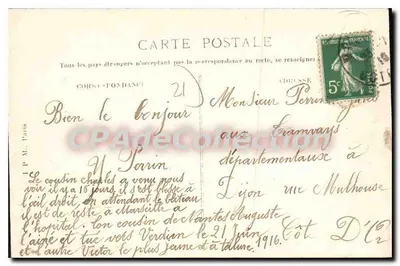 CARTE POSTALE
Tous les pays étrangers n'acceptent pas la correspondance au recto, se renseigner
CORRESPONDANCE
ADRESSE
21
5c
Bien le bonjour
Perrin
Monsieur Perrin
aux Tramways
départementause à
Dijon rue Mulhouse
Côt D'Or
Le cousin charles a venu nous
voir il y a 15 jours, il s'est blessé à
l'œil droit en attendant le bateau
il est de reste à Marseille à
l'hopital. ton cousin de Nantes Auguste
l'ainé et tué vers Verdun le 21 Juin
et l'autre Victor le plus jeune 1916.
I P M. Paris
CPA Collection